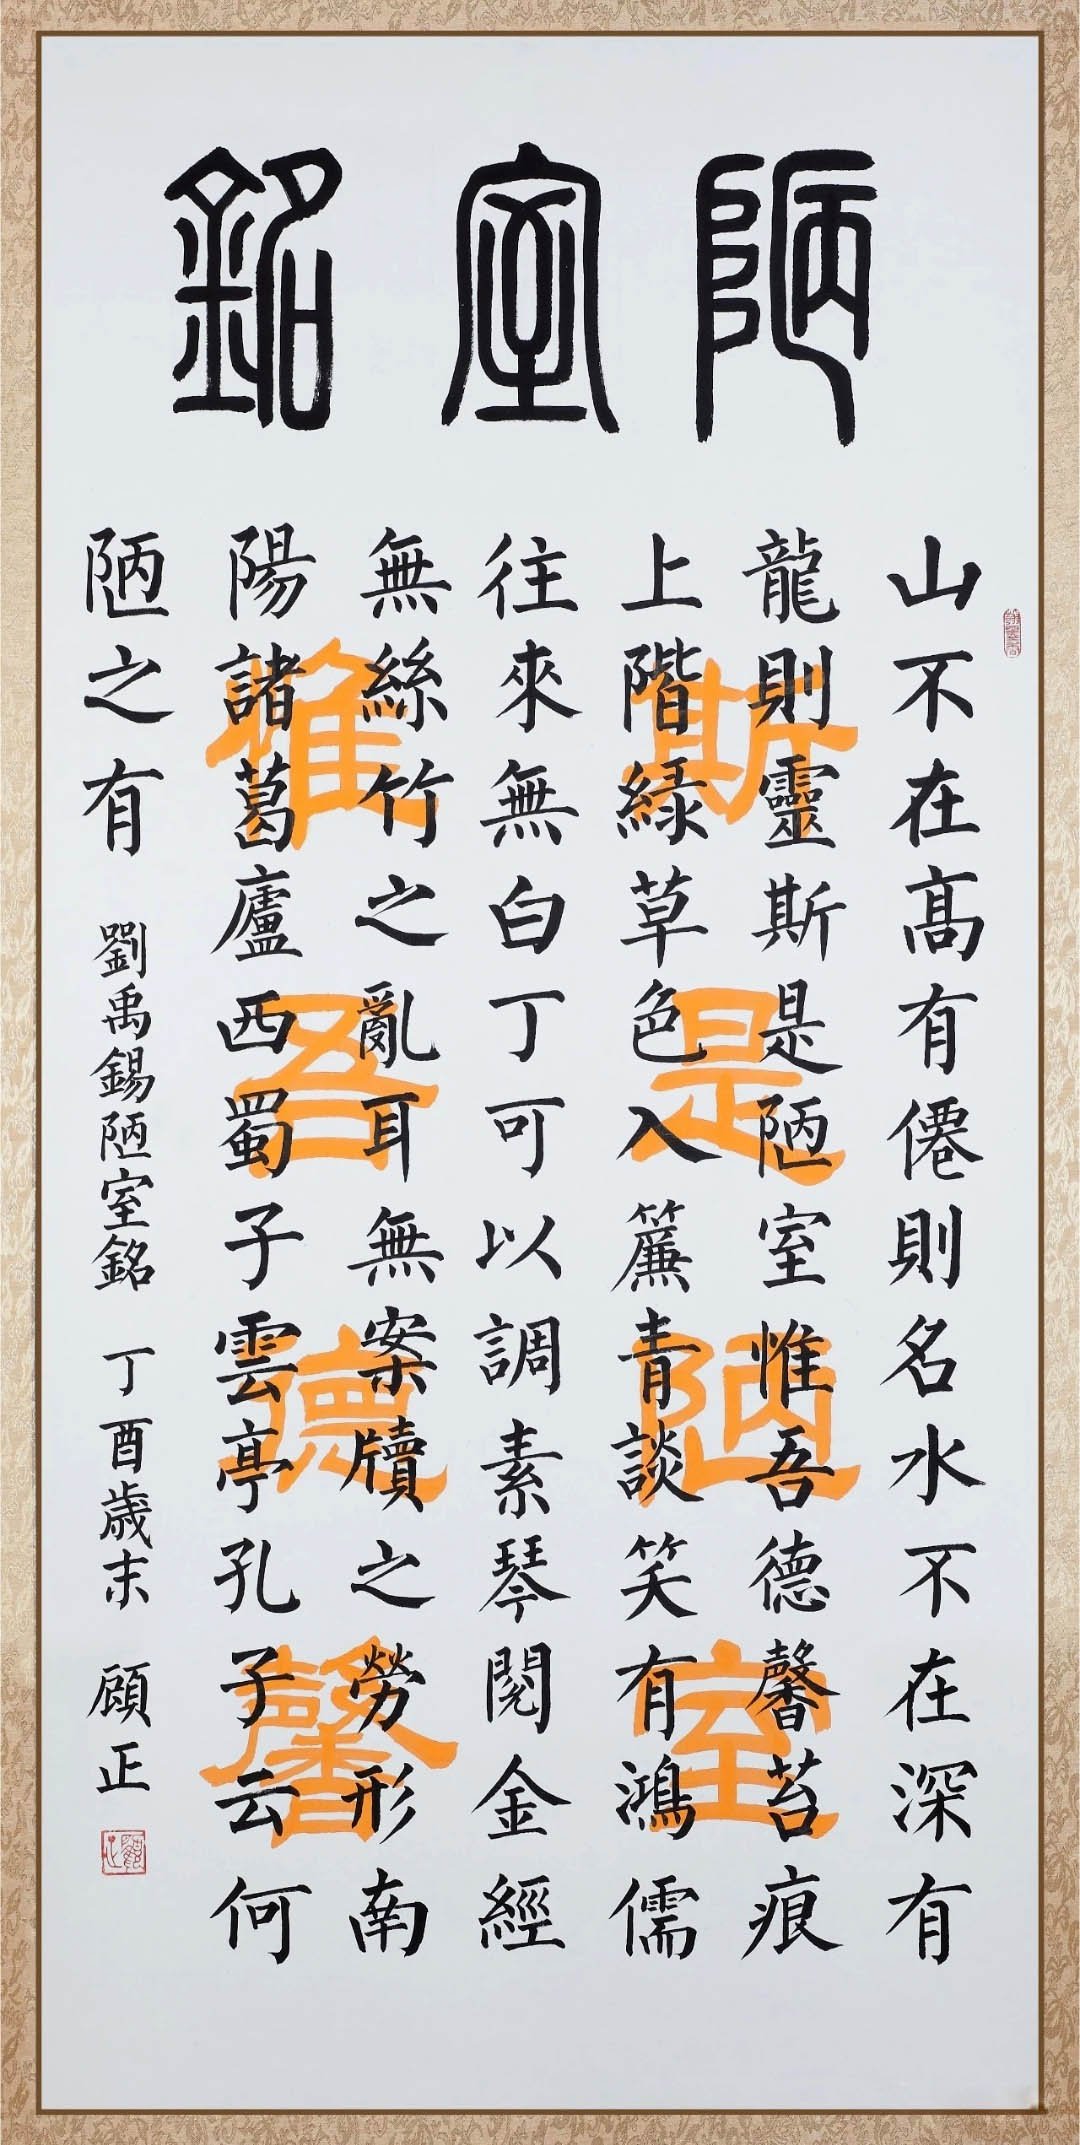 陋室銘
山不在高有僊則名水不在深有
龍則靈斯是陋室惟吾德馨苔痕
上階緑草色入簾青談笑有鴻儒
往來無白丁可以調素琴閱金經
無絲竹之亂耳無案牘之勞形南
陽諸葛廬西蜀子雲亭孔子云何
陋之有
劉禹錫陋室銘 丁酉歲末 顧正
斯是陋室
惟吾德馨